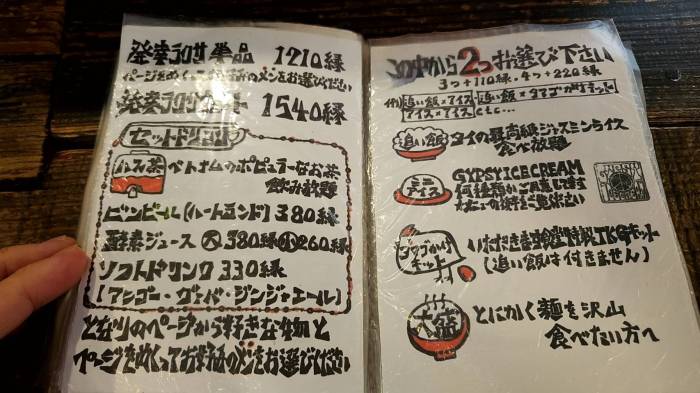 発奏ラクサ単品 1210縁
ページをめくってお好みのメンをお選びください
発奏ラクサセット 1540縁
セットドリンク
ハス茶
ベトナムのポピュラーなお茶
飲み放題
ビンビール(ハートランド)380縁
酵素ジュース 大380縁 小260縁
ソフトドリンク 330縁
[マンゴー・グァバ・ジンジャエール]
となりのページから好きな物と
ページをめくってお好みのメンをお選びください
この中から2つお選び下さい
3つ+110縁・4つ+220縁
例)追い飯×アイス 追い飯×タマゴかけキット
アイス×アイス etc...
追い飯
タイの最高級ジャスミンライス
食べ放題
ミニアイス
GYPSY ICECREAM
何種類かご用意してます
メニューの後半をご覧ください
タマゴかけキット
TKGキット
(追い飯は付きません)
大盛
とにかく麺を沢山
食べたい方へ